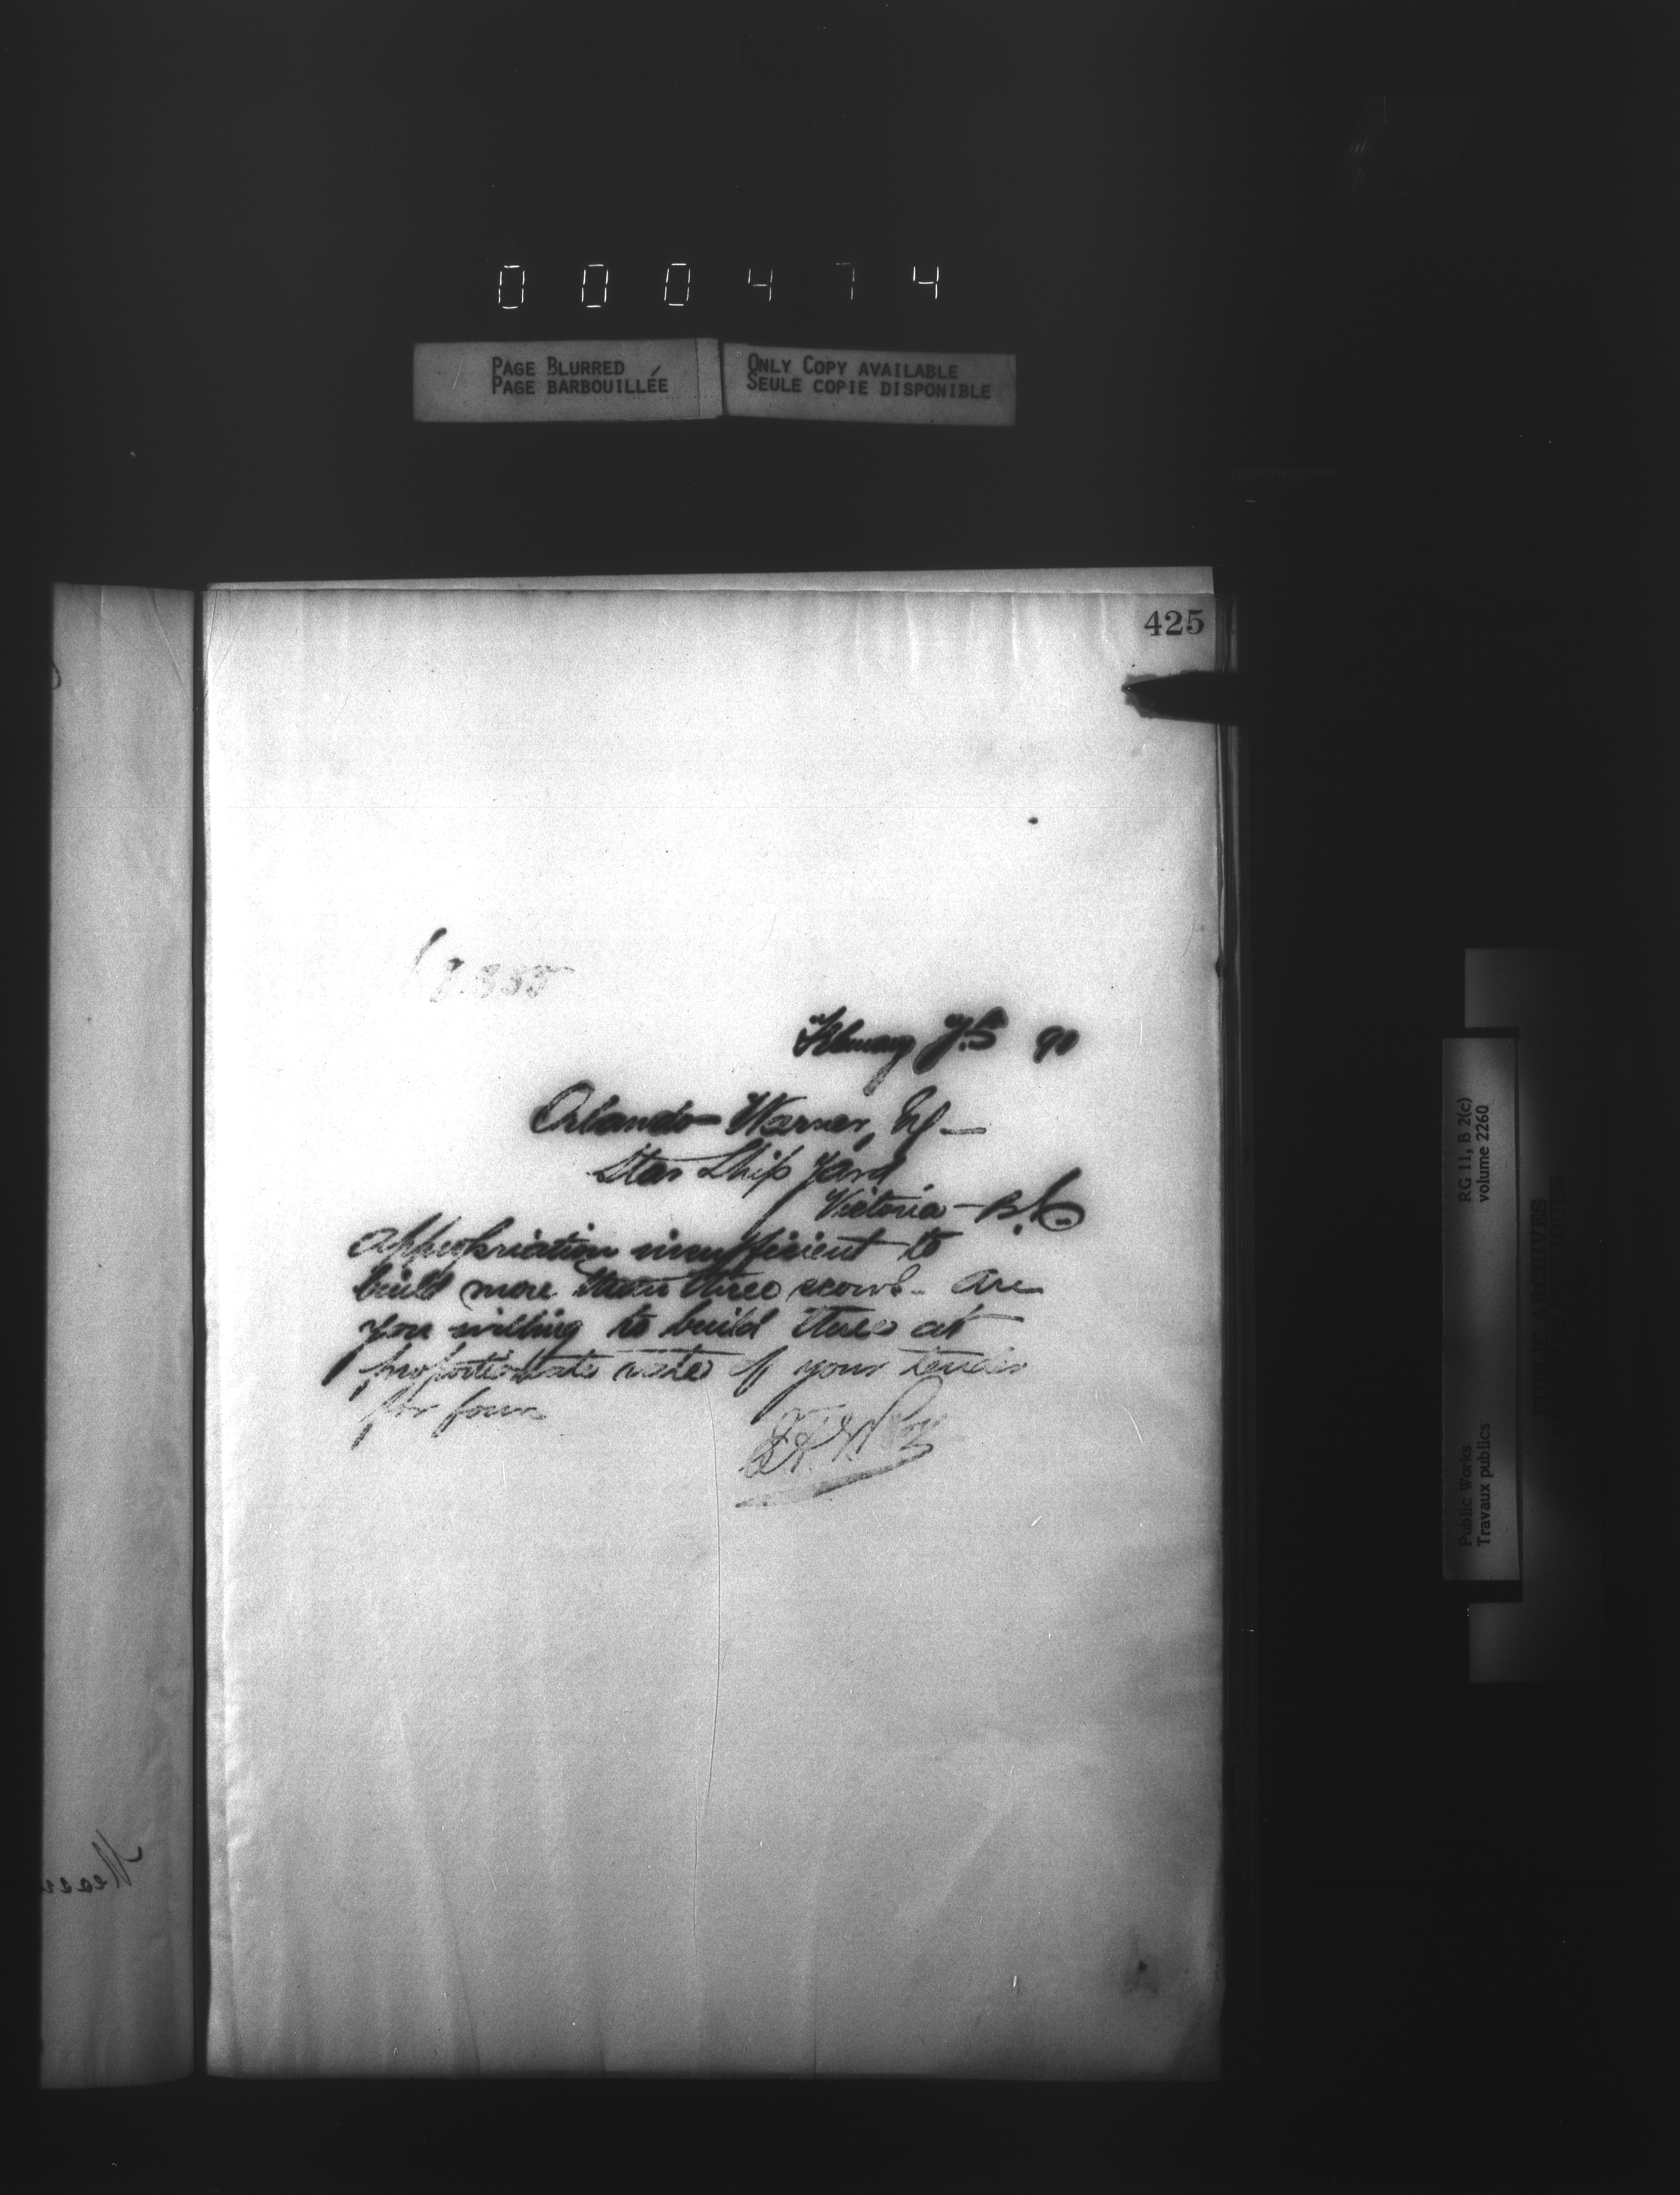 000474
PAGE BLURRED
PAGE BARBOUILLÉE
ONLY COPY AVAILABLE
SEULE COPIE DISPONIBLE
425
February 90
Orlando Warner, Esq
Star Ship Yard
Victoria - B.C.
Appropriation insufficient to
build more than three scows - are
you willing to build three at
proportionate rate of your tender
for four
RG 11, B 2(c)
volume 2260
Public Works
Travaux publics
PUBLIC ARCHIVES